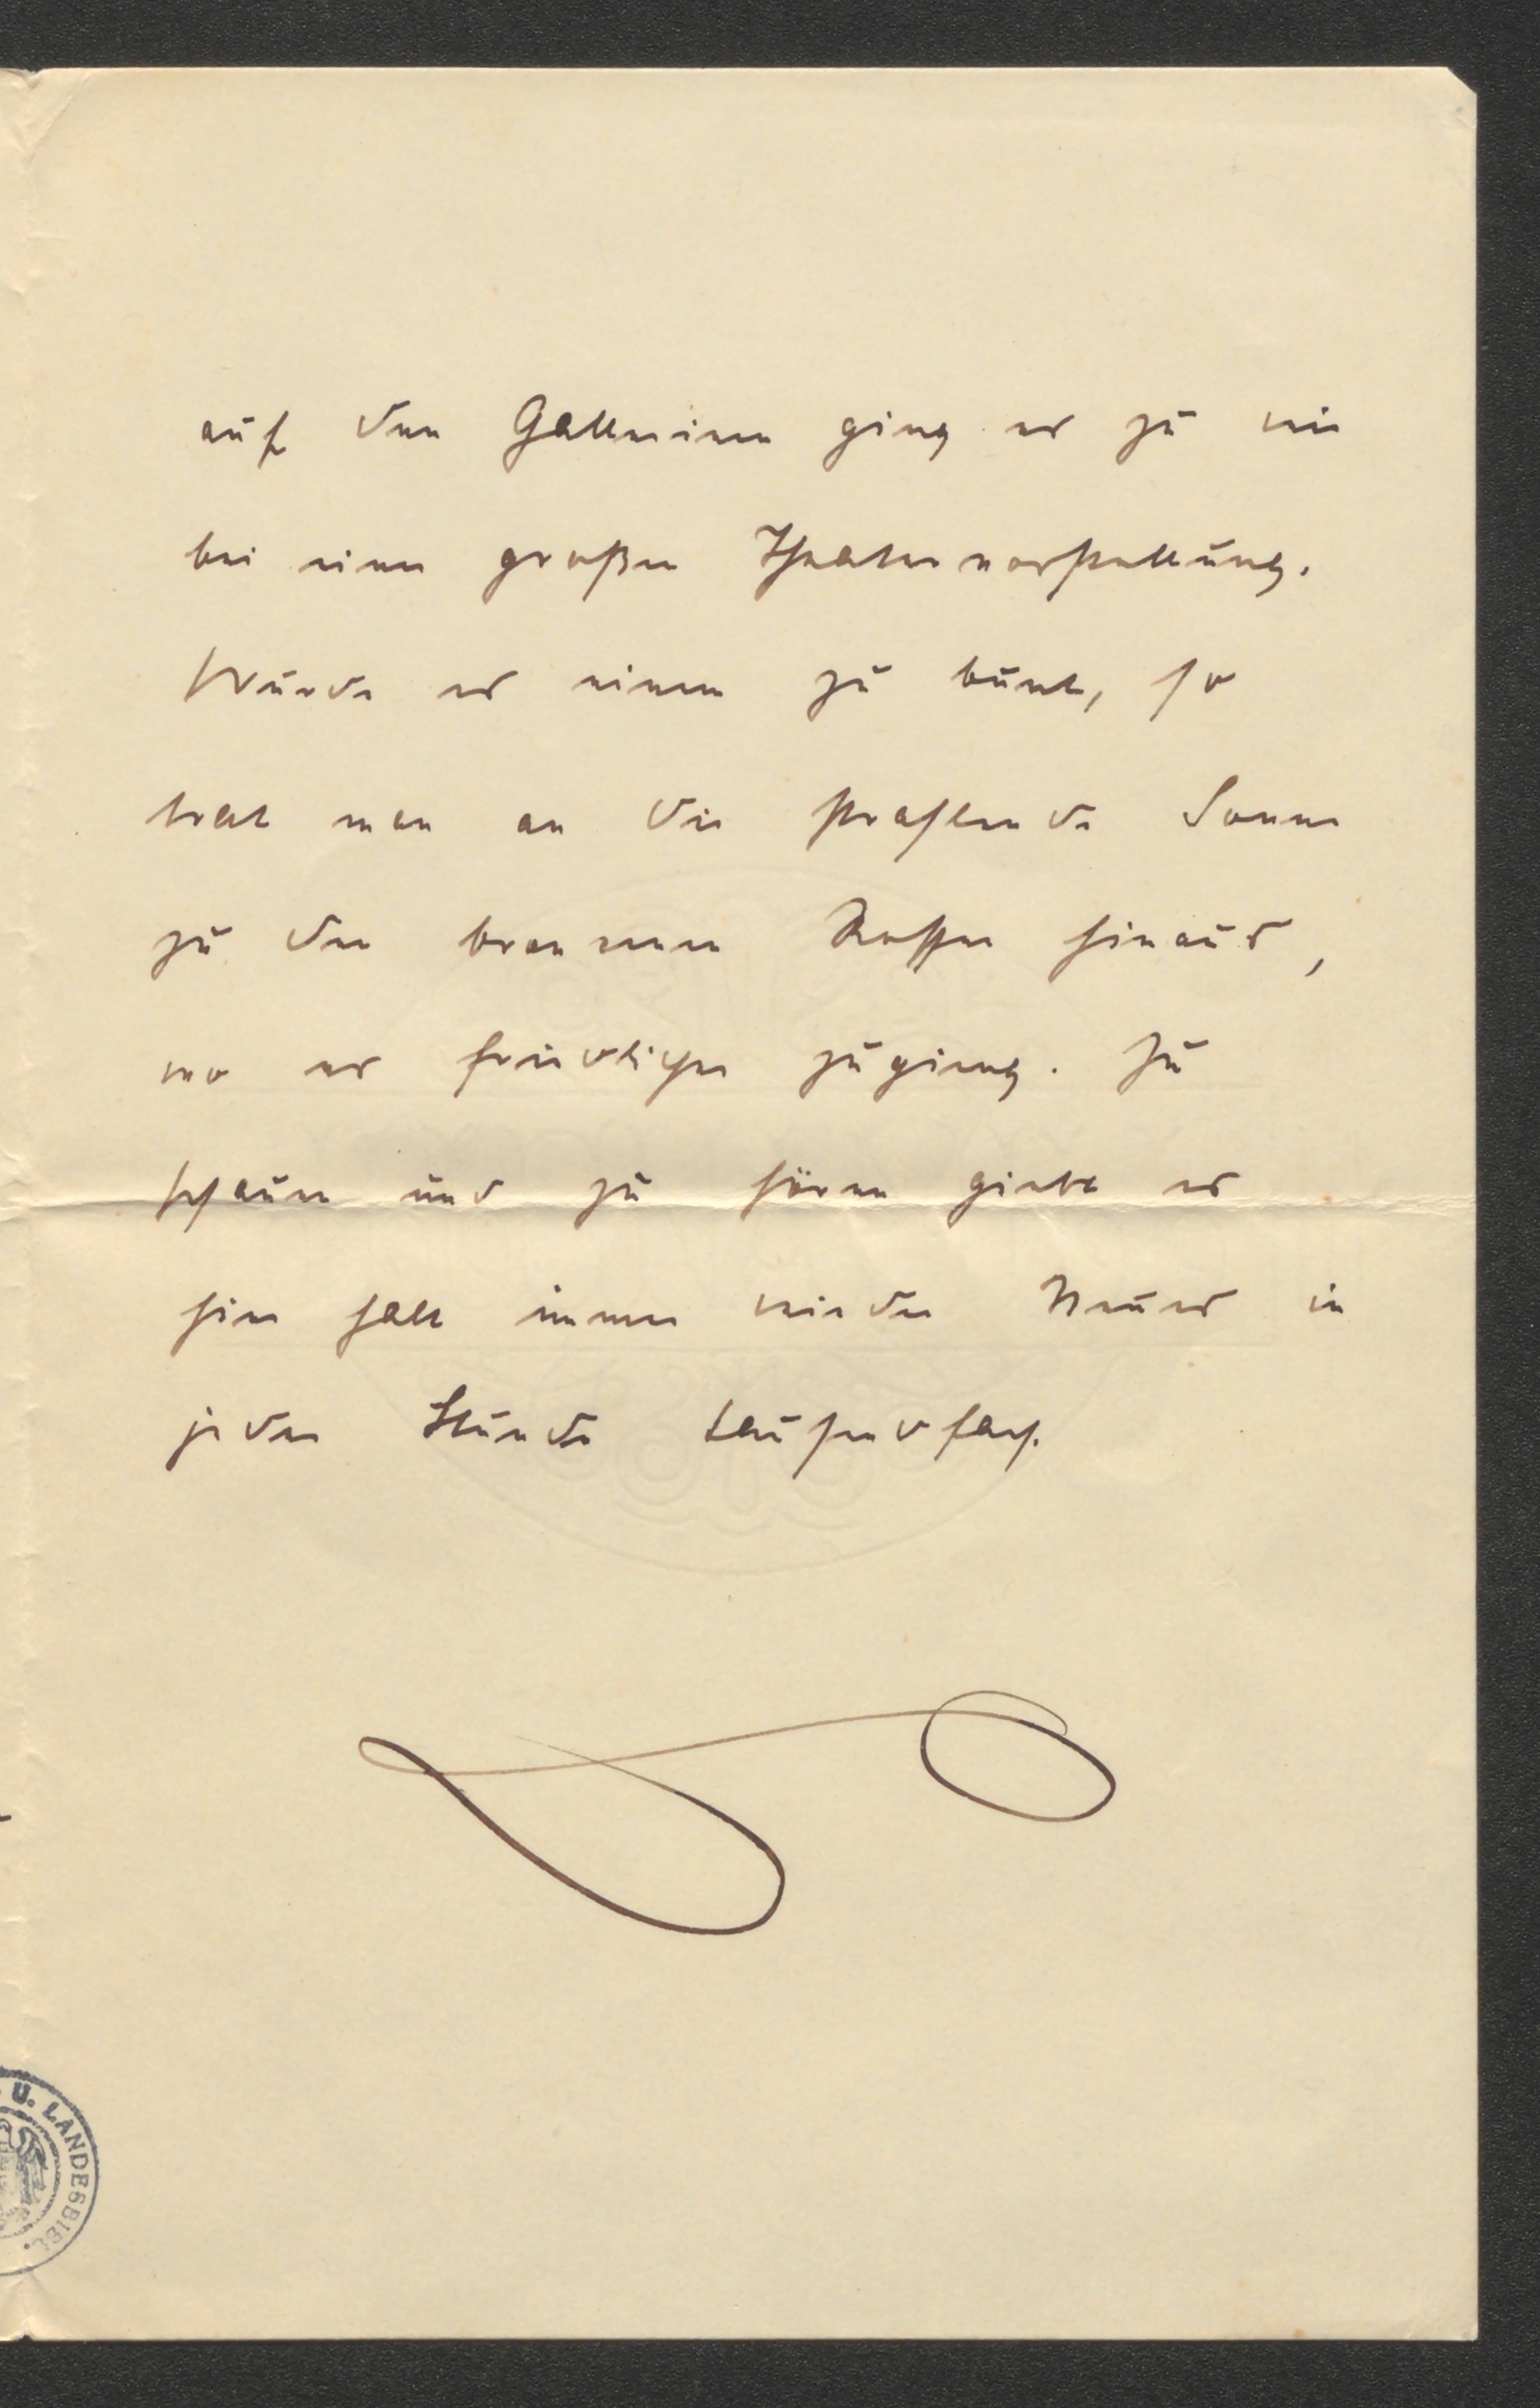 auf den Gallerieen ging es zu wie
bei einer großen Theatervorstellung.
Wurde es einem zu bunt, so
trat man an die strahlende Sonne
zu den braunen Rossen hinaus,
wo es friedlicher zuging. Zu
schauen und zu hören giebt es
hier halt immer wieder Neues in
jeder Stunde tausendfach.
U. LANDESBIBL.